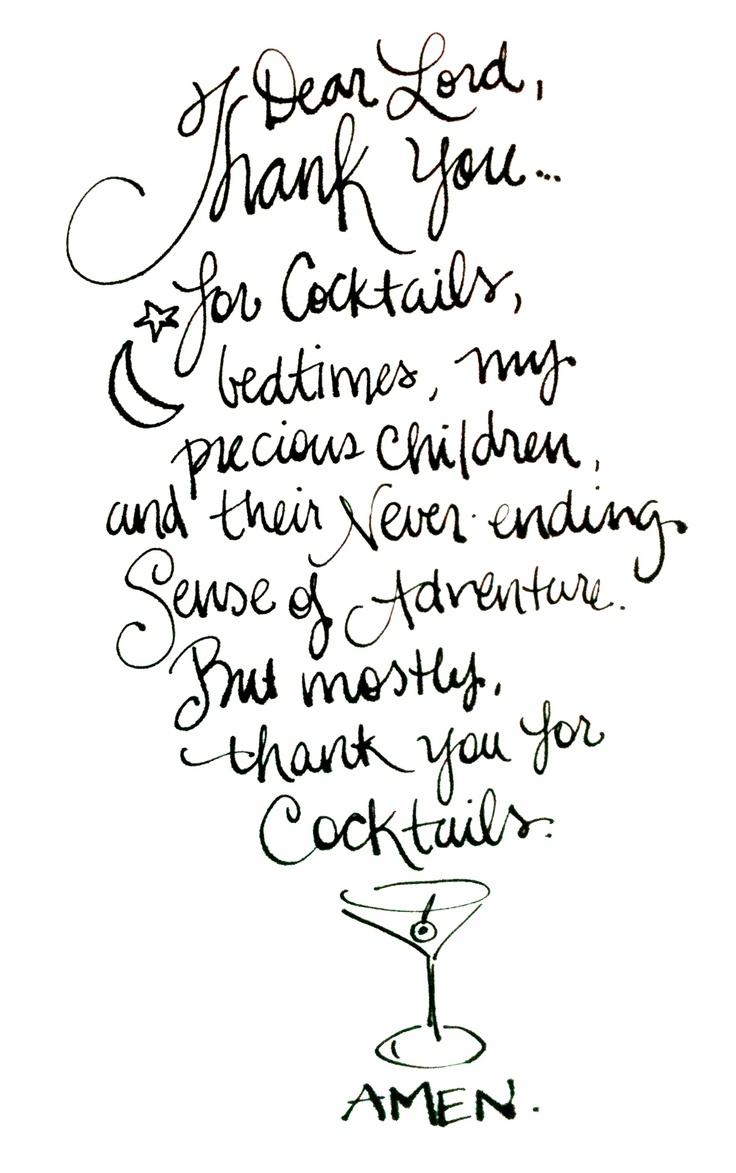 Dear Lord,
Thank You...
for Cocktails,
bedtimes, my
precious Children,
and their Never ending
Sense of Adventure.
But mostly,
thank you for
Cocktails.
AMEN.